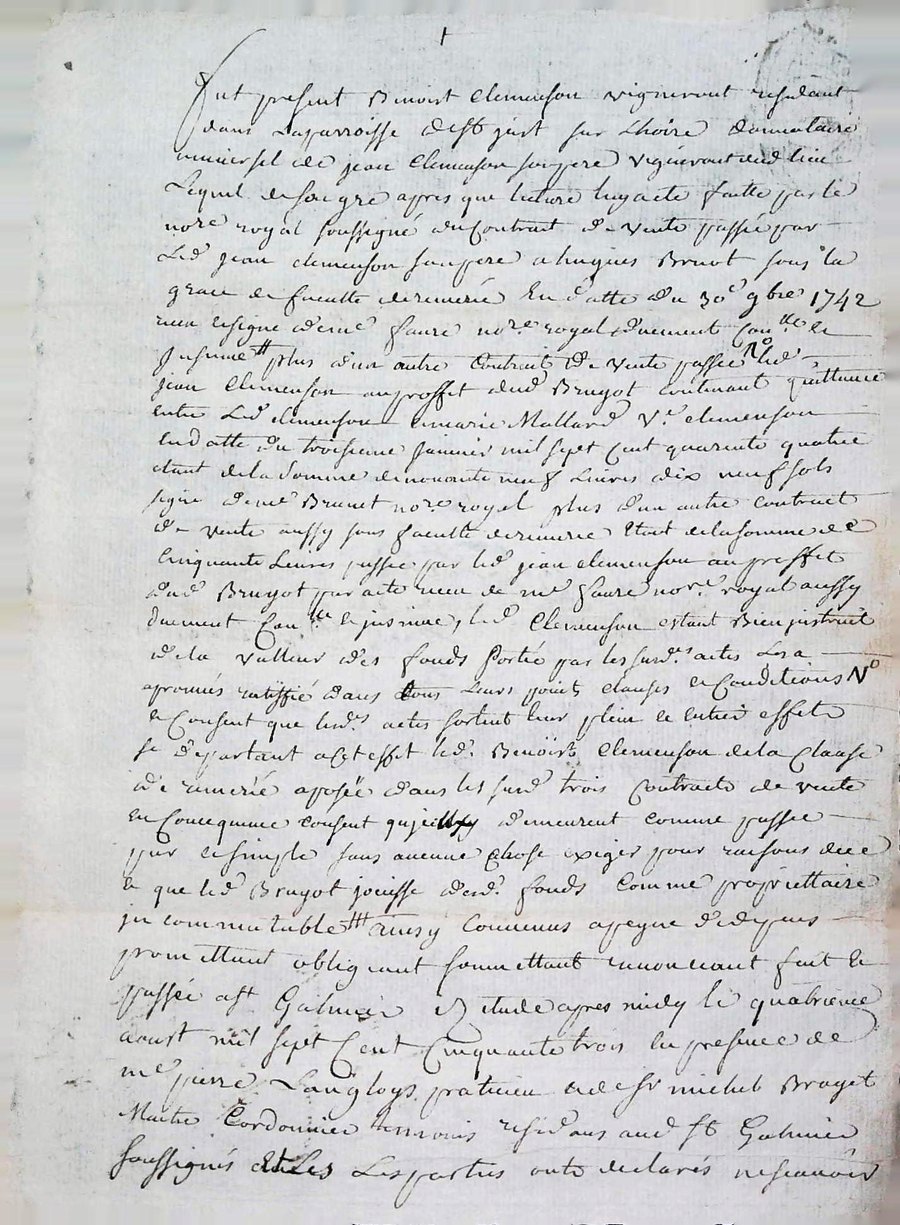 Fut present Benoist Clemenson vigneront residant
dans la parroisse de st just sur Lhoire donnataire
universel de jean Clemenson son pere vigneront dud lieu
Lequel de son gre apres que lecture luy a ete faitte par le
nore royal soussigné du Contrait de vente passée par
Led jean clemenson son pere a hugues Bruot sous la
grace de faculte de rémeré En datte du 30e 9bre 1742
receu et signe de me faure nore royal duement Conlle et
Insinué plus d'un autre Contrait de vente passée led
jean Clemenson au proffit dud Bruyot contenant quittance
entre Led clemenson et marie Mallard Ve clemenson
en datte du troisieme Janvier mil sept Cent quarente quatre
etant de la somme de nonante neuf Livres dix neuf sols
signé de me Brunet nore royal plus d'un autre Contract
de vente aussy sous faculte de rémeré etant de la somme de
Cinquante Livres passee par led jean clemenson au proffit
dud Bruyot par acte receu de me faure nore royal aussy
duement Conlle et insinué, led Clemenson estant Bien instruit
de la valleur des fonds Porté par les surds actes Les a
aprouvés ratiffié dans tous Leurs points clauses et Conditions No
et Consent que lesds actes sortent leur plein et entier effet
se departant a cet effet led Benoist Clemenson de la Clause
de rémeré aposée dans les surd trois Contracts de vente
En Consequence consent qu'ils demeurent comme passée
pur et simple sans aucune Chose exiger pour raisons de ce
et que led Bruyot jouisse desd fonds Comme proprietaire
in commutable ainsy Convenus a peyne de depens
promettant obligeant soumettant renonceant fait et
passée a st Galmier Etude apres midy le quatrieme
aoust mil sept Cent Cinquante trois En presence de
me pierre Langloys praticien et de sr michel Bruyet
Maitre Cordonnier temoins residans aud st Galmier
soussignés Les parties onts declarés ne scauoir